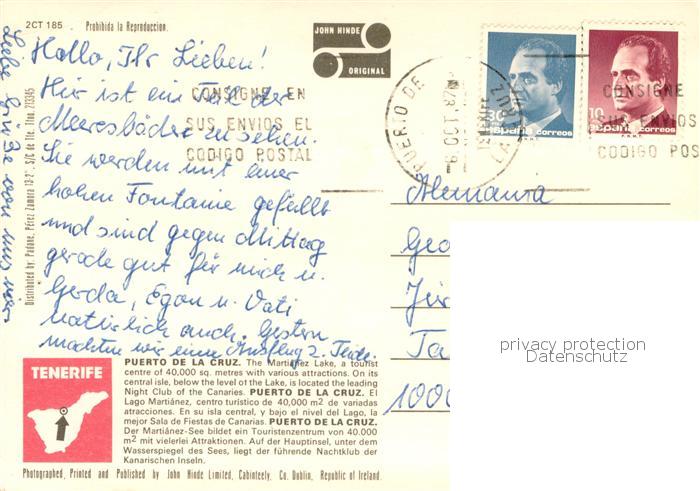 2CT 185 Prohibida la Reproduccion.
JOHN HINDE
ORIGINAL
Hallo, Ihr Lieben!
Hir ist ein Teil der
Meeresbäder zu sehen.
Sie werden mit einer
hohen Fontaine gefüllt
und sind gegen Mittag
gerade gut für mich u.
Gerda, Egon u. Vati
natürlich auch. Gestern
machten wir einen Ausflug z. Teide.
Liebe Grüße von uns
CONSIGNE EN
SUS ENVIOS EL
CODIGO POSTAL
PUERTO DE LA CRUZ
30
España correos
F.N.M.T.
10
España correos
F.N.M.T.
CONSIGNE
SUS ENVIOS
CODIGO POS
Alemania
Geo
Ta
1000
privacy protection
Datenschutz
Distributed by: Padane, Pérez Zamora
TENERIFE
PUERTO DE LA CRUZ. The Martiánez Lake, a tourist
centre of 40,000 sq. metres with various attractions. On its
central isle, below the level of the Lake, is located the leading
Night Club of the Canaries. PUERTO DE LA CRUZ. El
Lago Martiánez, centro turístico de 40,000 m2 de variadas
atracciones. En su isla central, y bajo el nivel del Lago, la
mejor Sala de Fiestas de Canarias. PUERTO DE LA CRUZ.
Der Martiánez-See bildet ein Touristenzentrum von 40.000
m2 mit vielerlei Attraktionen. Auf der Hauptinsel, unter dem
Wasserspiegel des Sees, liegt der führende Nachtklub der
Kanarischen Inseln.
Photographed, Printed and Published by John Hinde Limited, Cabinteely, Co. Dublin, Republic of Ireland.